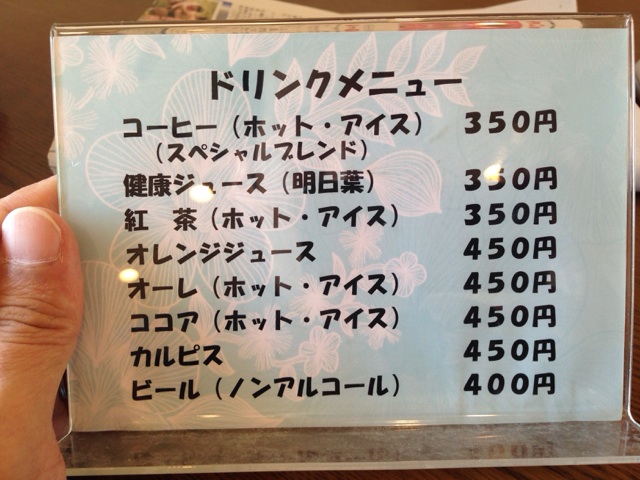 ドリンクメニュー
コーヒー（ホット・アイス） ３５０円
（スペシャルブレンド）
健康ジュース（明日葉） ３５０円
紅　茶（ホット・アイス） ３５０円
オレンジジュース ４５０円
オーレ（ホット・アイス） ４５０円
ココア（ホット・アイス） ４５０円
カルピス ４５０円
ビール（ノンアルコール） ４００円